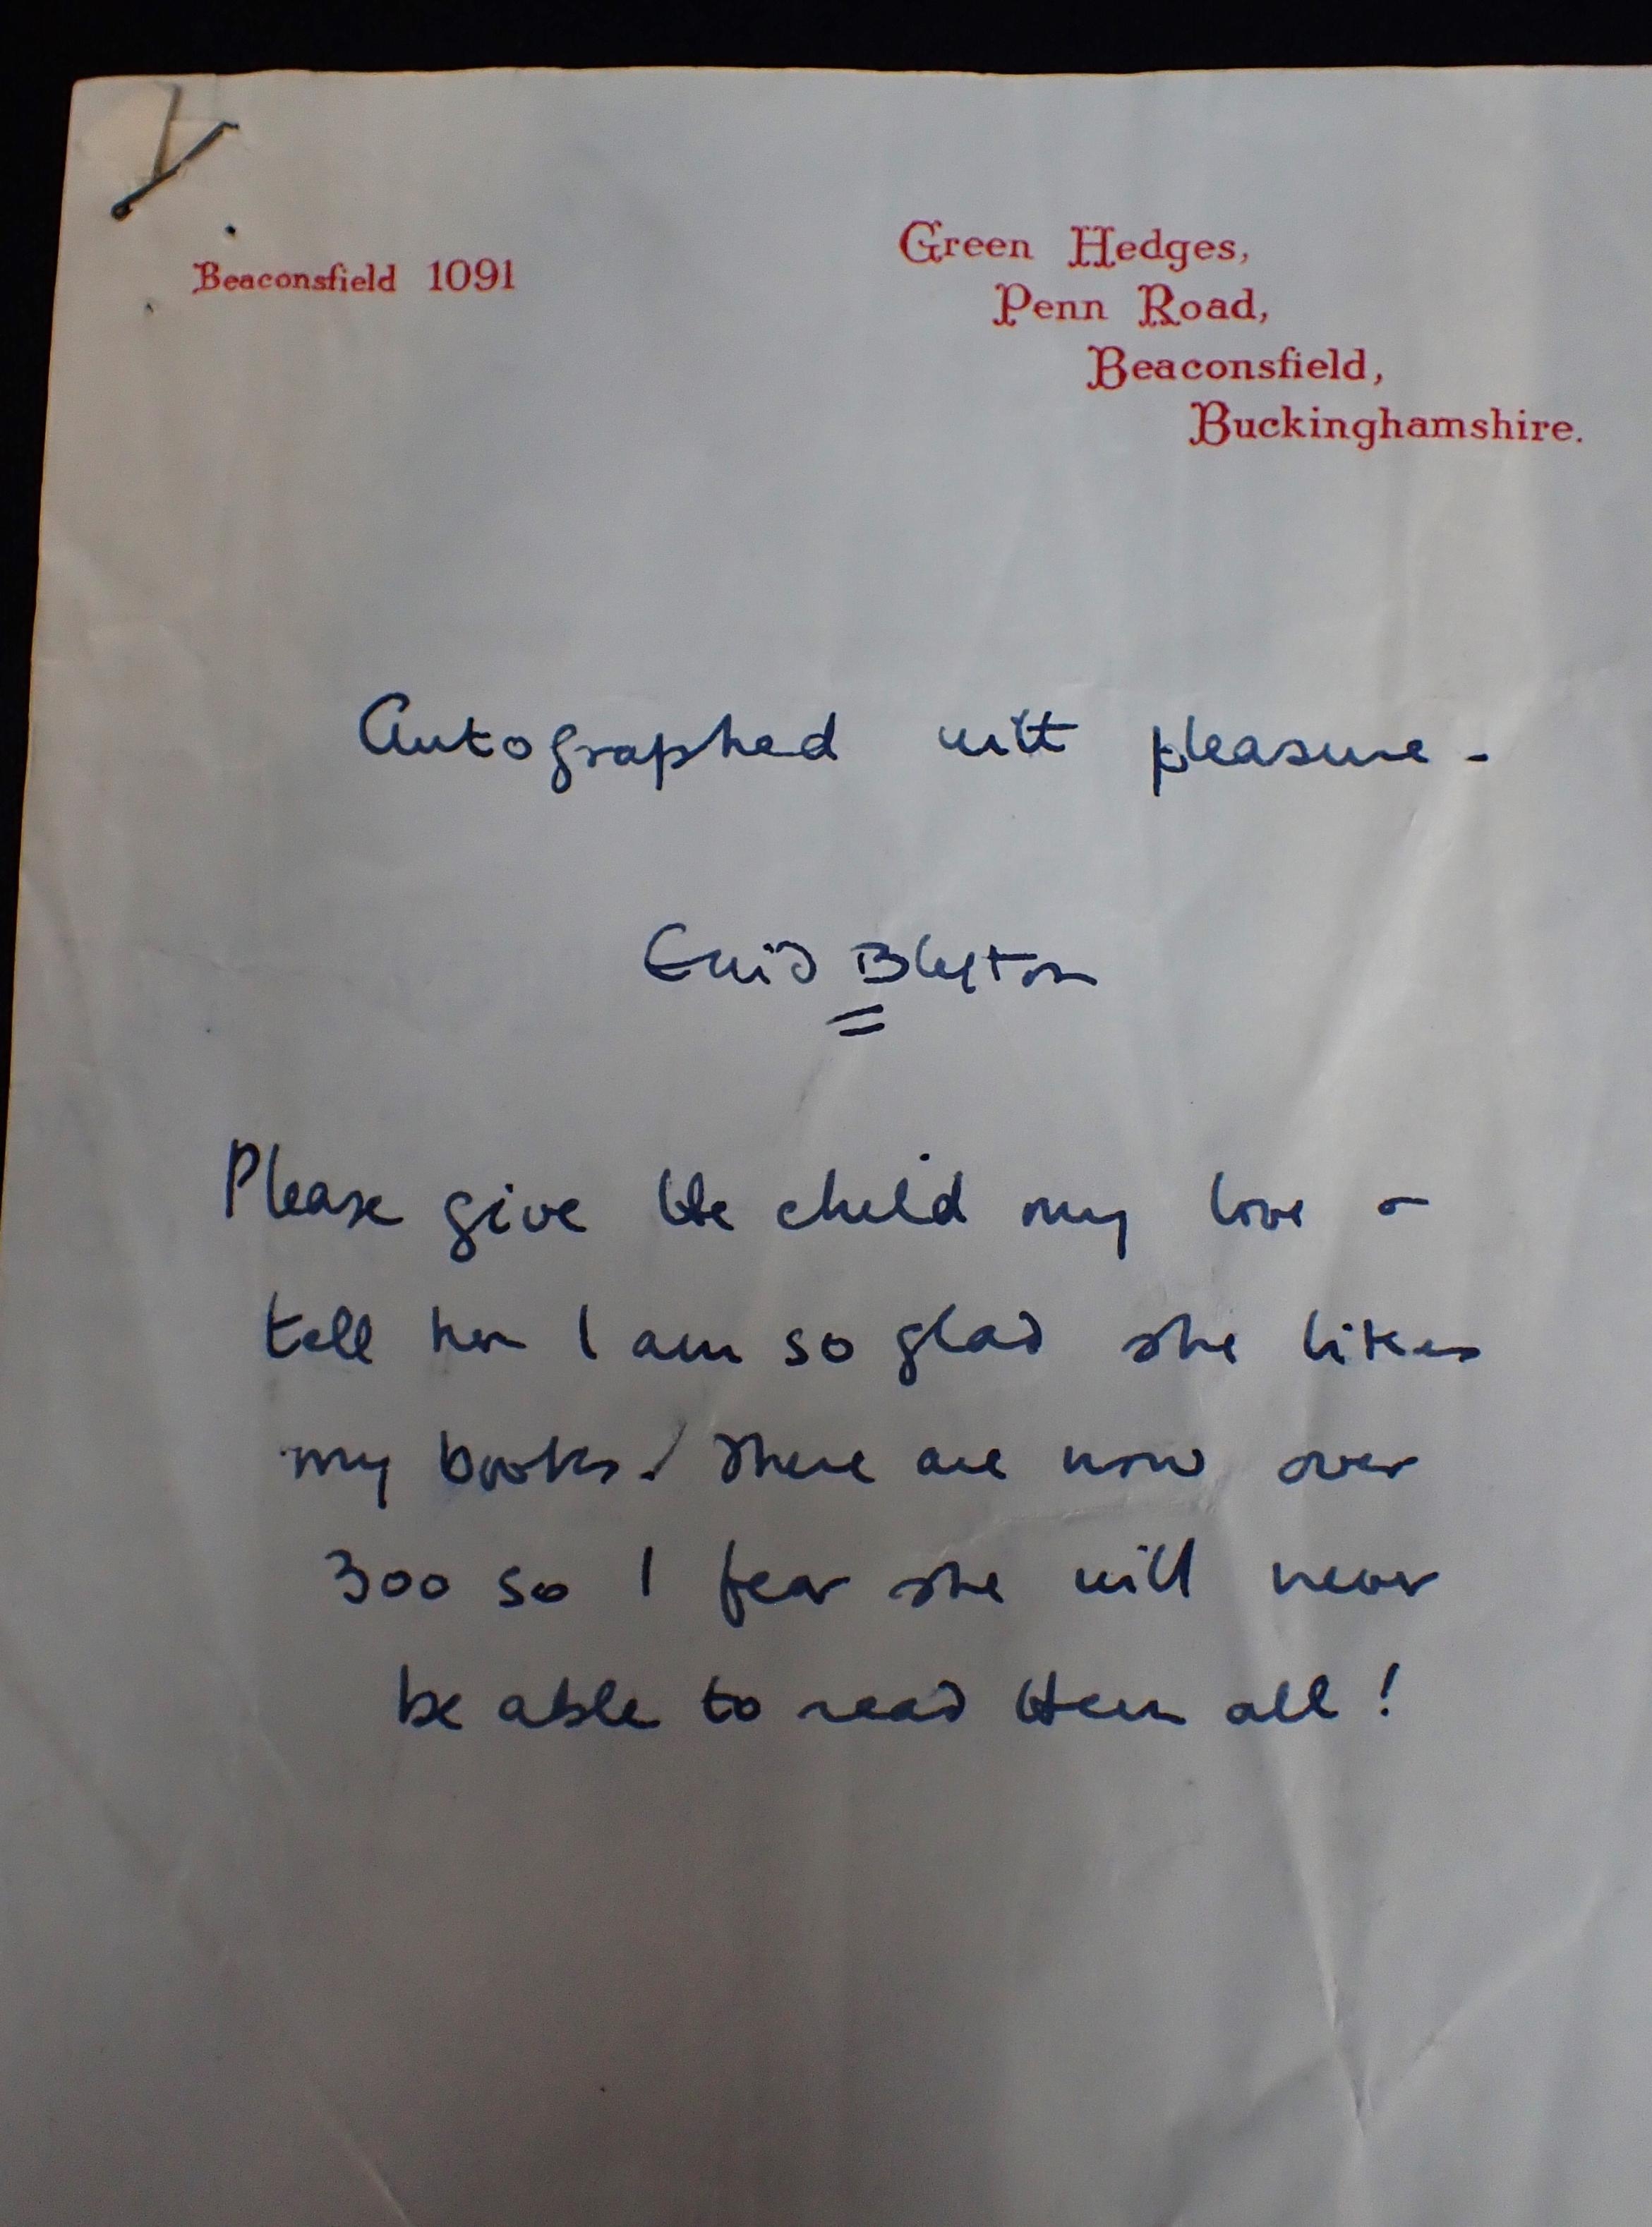 Beaconsfield 1091
Green Hedges,
Penn Road,
Beaconsfield,
Buckinghamshire.
Autographed with pleasure -
Enid Blyton
Please give the child my love &
tell her I am so glad she likes
my books! There are now over
300 so I fear she will never
be able to read them all!